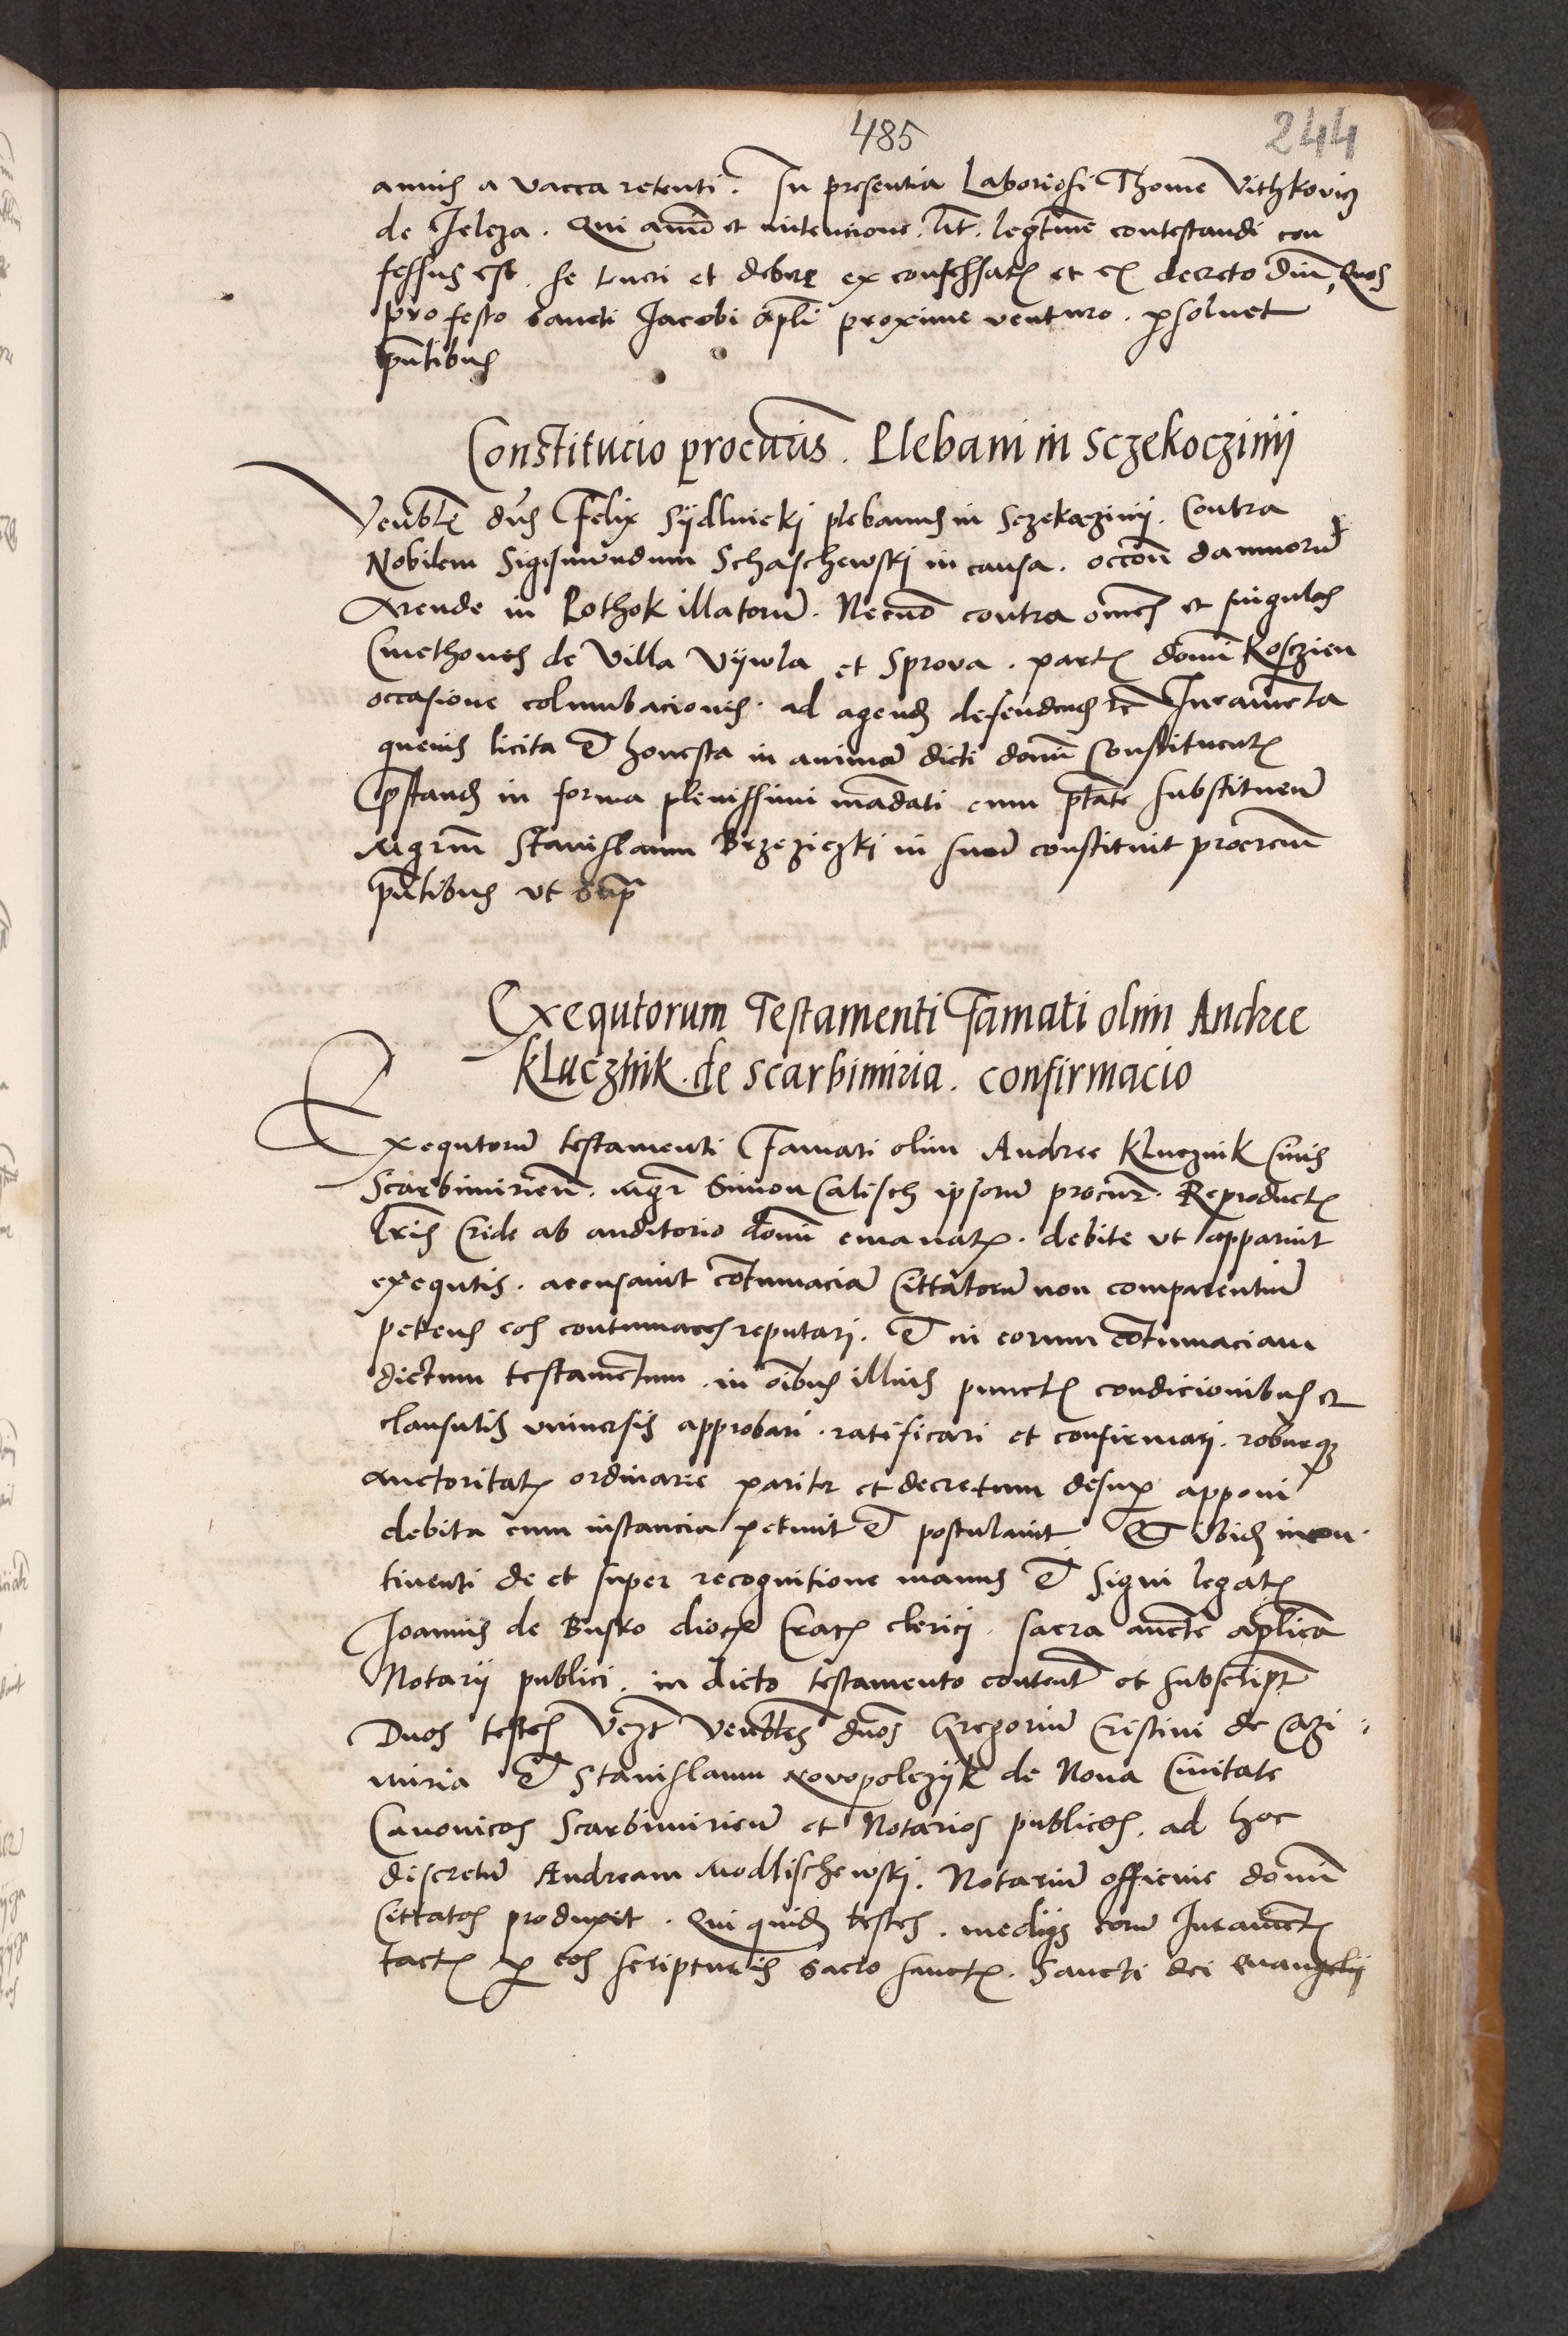 485
244
annis a vacca retenti. In presentia Laboriosi Thome Vithkovicz
de Jelcza. Qui animo et intencione. lit. legittime contestandi con
fessus est. se teneri et debere ex confessatis et ex decreto Dni, Quos
pro festo sancti Jacobi apli proxime venturo. psoluet
pntibus
Constitucio procuris. Plebani in Sczekoczinij
Venblis dns Felix Sijdlnickj plebanus in Sczekoczinij. Contra
Nobilem Sigismundum Schaschewskj in causa. occone damnorum
Arende in Pothok illatorum. Necno contra omnes et singulos
Cmethones de Villa Vijwla et Sprova. partis domni Kosczien
occasione columbacionis. ad agend defendend etc Juramenta
queuis licita et honesta in animam dicti domni Constituentis
pstand in forma plenissimi mandati cum ptate substituendi
Mgrum Stanislaum Brzeziczkj in suum constituit procrem
pntibus ut supra
Exequtorum Testamenti Famati olim Andree
Klucznik. de Scarbimiria. confirmacio
Exequtorum testamenti Famati olim Andree Klucznik Ciuis
Scarbimirien. Mgr Simon Calisch ipsorum procur. Reproductis
Lris Cride ab auditorio domni emanatis. debite ut apparuit
exequtis. accusauit contumaciam Cittatorum non comparentium
petens eos contumaces reputari. et in eorum contumaciam
dictum testamentum. in oibus illius punctis condicionibus et
clausulis uniuersis approbari. ratificari et confirmarj. roburque
auctoritatis ordinarie pariter et decretum desuper apponi
debita cum instancia petiuit et postulauit. Et ibid incon-
tinenti de et super recognitione manus et Signi legatis
Joannis de Busko diocis Cracis clericj. sacra aucte aplica
Notarij publici. in dicto testamento content et subscript
Duos testes vezt Venbles dnos Gregorium Cristini de Cazi-
miria et Stanislaum Novopolczijk de Noua Ciuitate
Canonicos Scarbimirien et Notarios publicos. ad hoc
discretum Andream Modlischewskj. Notarium officine domni
Cittatos produxit. Qui quid testes. medijs eorum Juramentis
tactis per eos scripturis sacro sanctis. Sancti dei euangelij